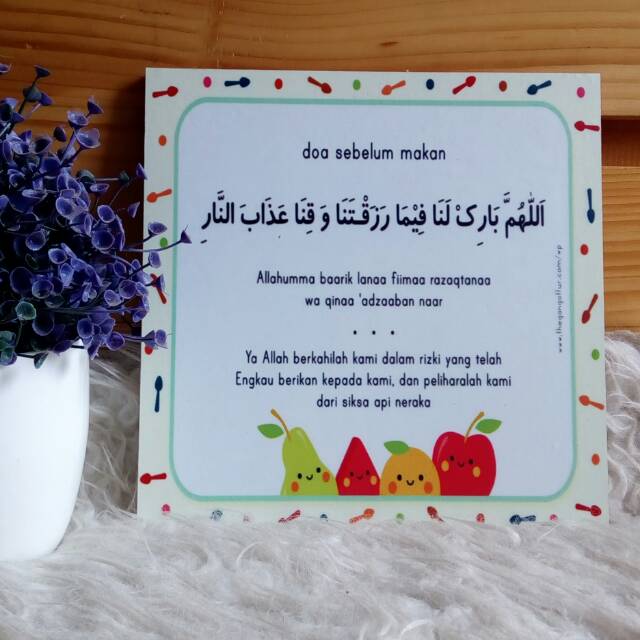 doa sebelum makan
اَللّٰهُمَّ بَارِكْ لَنَا فِيْمَا رَزَقْتَنَا وَ قِنَا عَذَابَ النَّارِ
Allahumma baarik lanaa fiimaa razaqtanaa
wa qinaa 'adzaaban naar
• • •
Ya Allah berkahilah kami dalam rizki yang telah
Engkau berikan kepada kami, dan peliharalah kami
dari siksa api neraka